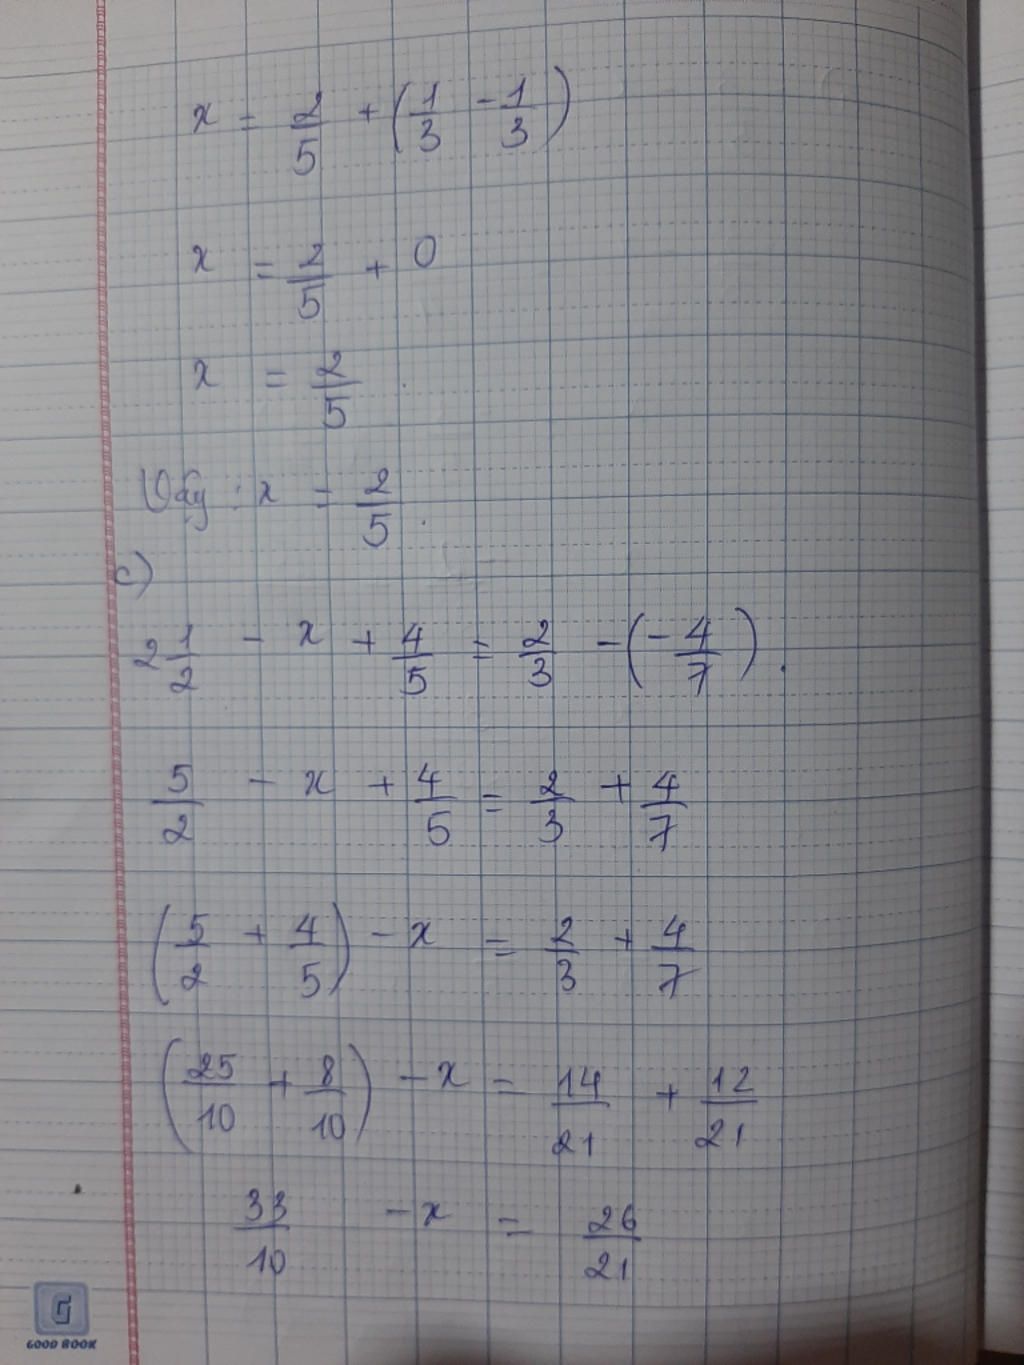 x = 2/5 + (1/3 - 1/3)
x = 2/5 + 0
x = 2/5
Vậy : x = 2/5.
c)
2 1/2 - x + 4/5 = 2/3 - (-4/7).
5/2 - x + 4/5 = 2/3 + 4/7
(5/2 + 4/5) - x = 2/3 + 4/7
(25/10 + 8/10) - x = 14/21 + 12/21
33/10 - x = 26/21
G
GOOD BOOK